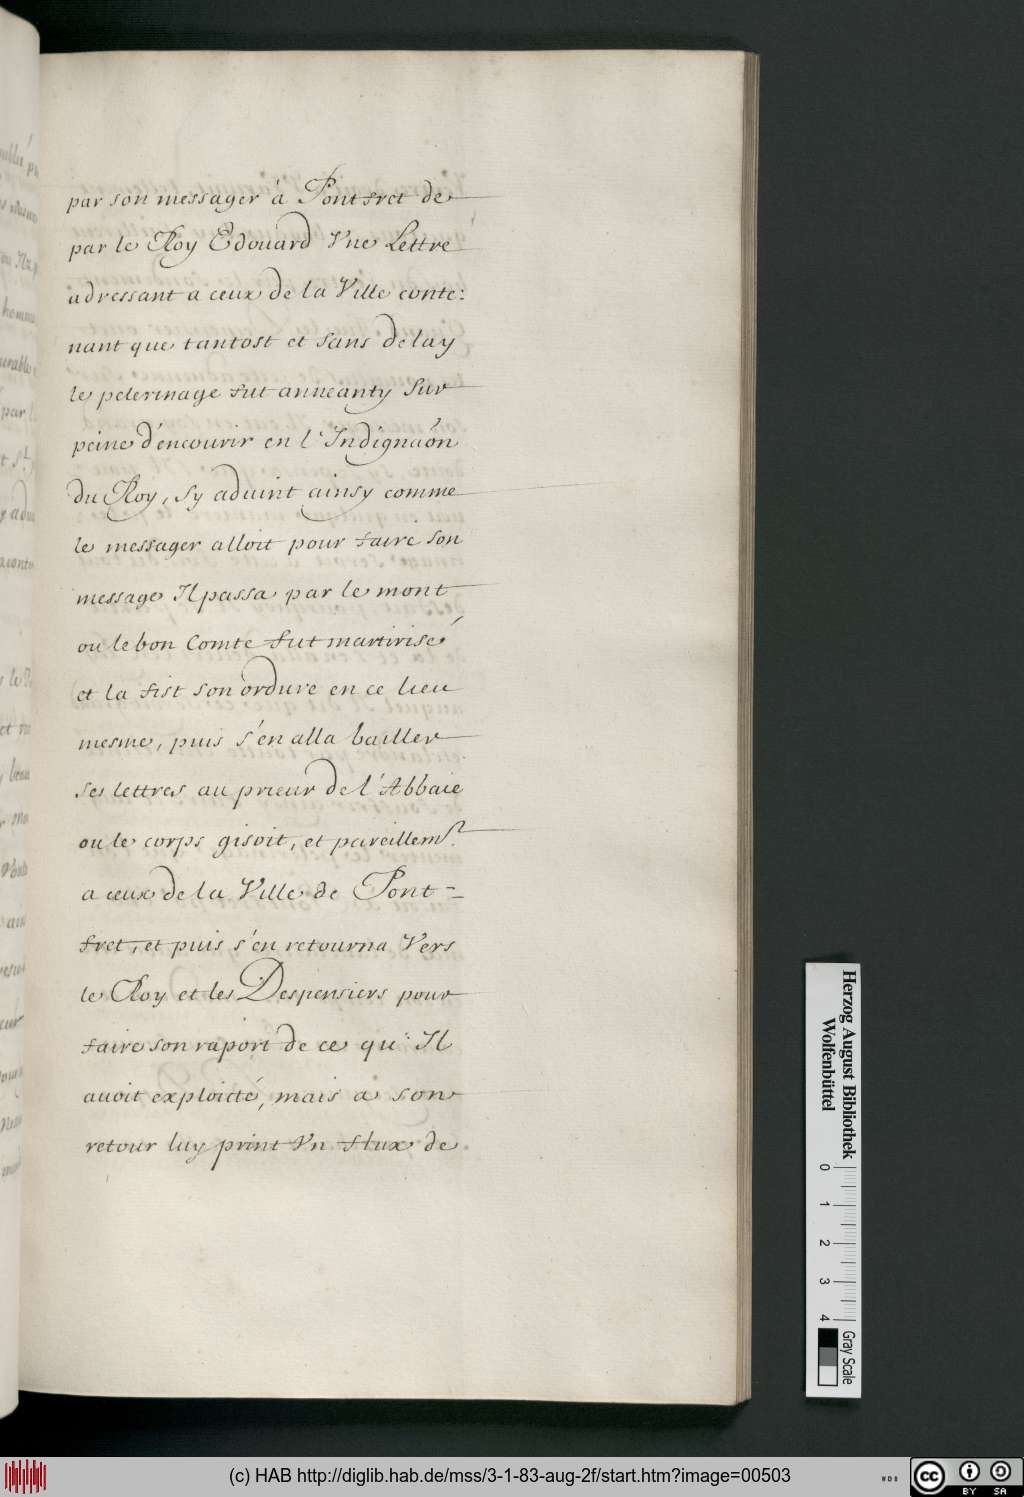 par son messager à Pontfret de
par le Roy Edouard Vne Lettre
adressant a ceux de la Ville conte:
nant que tantost et sans delay
le pelerinage fut anneanty sur
peine d'encourir en l'Indignaôn
du Roy, sy aduint ainsy comme
le messager alloit pour faire son
message Il passa par le mont
ou le bon Comte fut martirisé
et la fist son ordure en ce lieu
mesme, puis s'en alla bailler
ses lettres au prieur de l'Abbaie
ou le corps gisoit, et pareillemt.
a ceux de la Ville de Pont=
fret, et puis s'en retourna Vers
le Roy et les Despensiers pour
faire son raport de ce qu'Il
auoit exploicté, mais a son
retour luy print Vn flux de
Herzog August Bibliothek
Wolfenbüttel
0 1 2 3 4
Gray Scale
(c) HAB http://diglib.hab.de/mss/3-1-83-aug-2f/start.htm?image=00503
WDB
cc BY SA